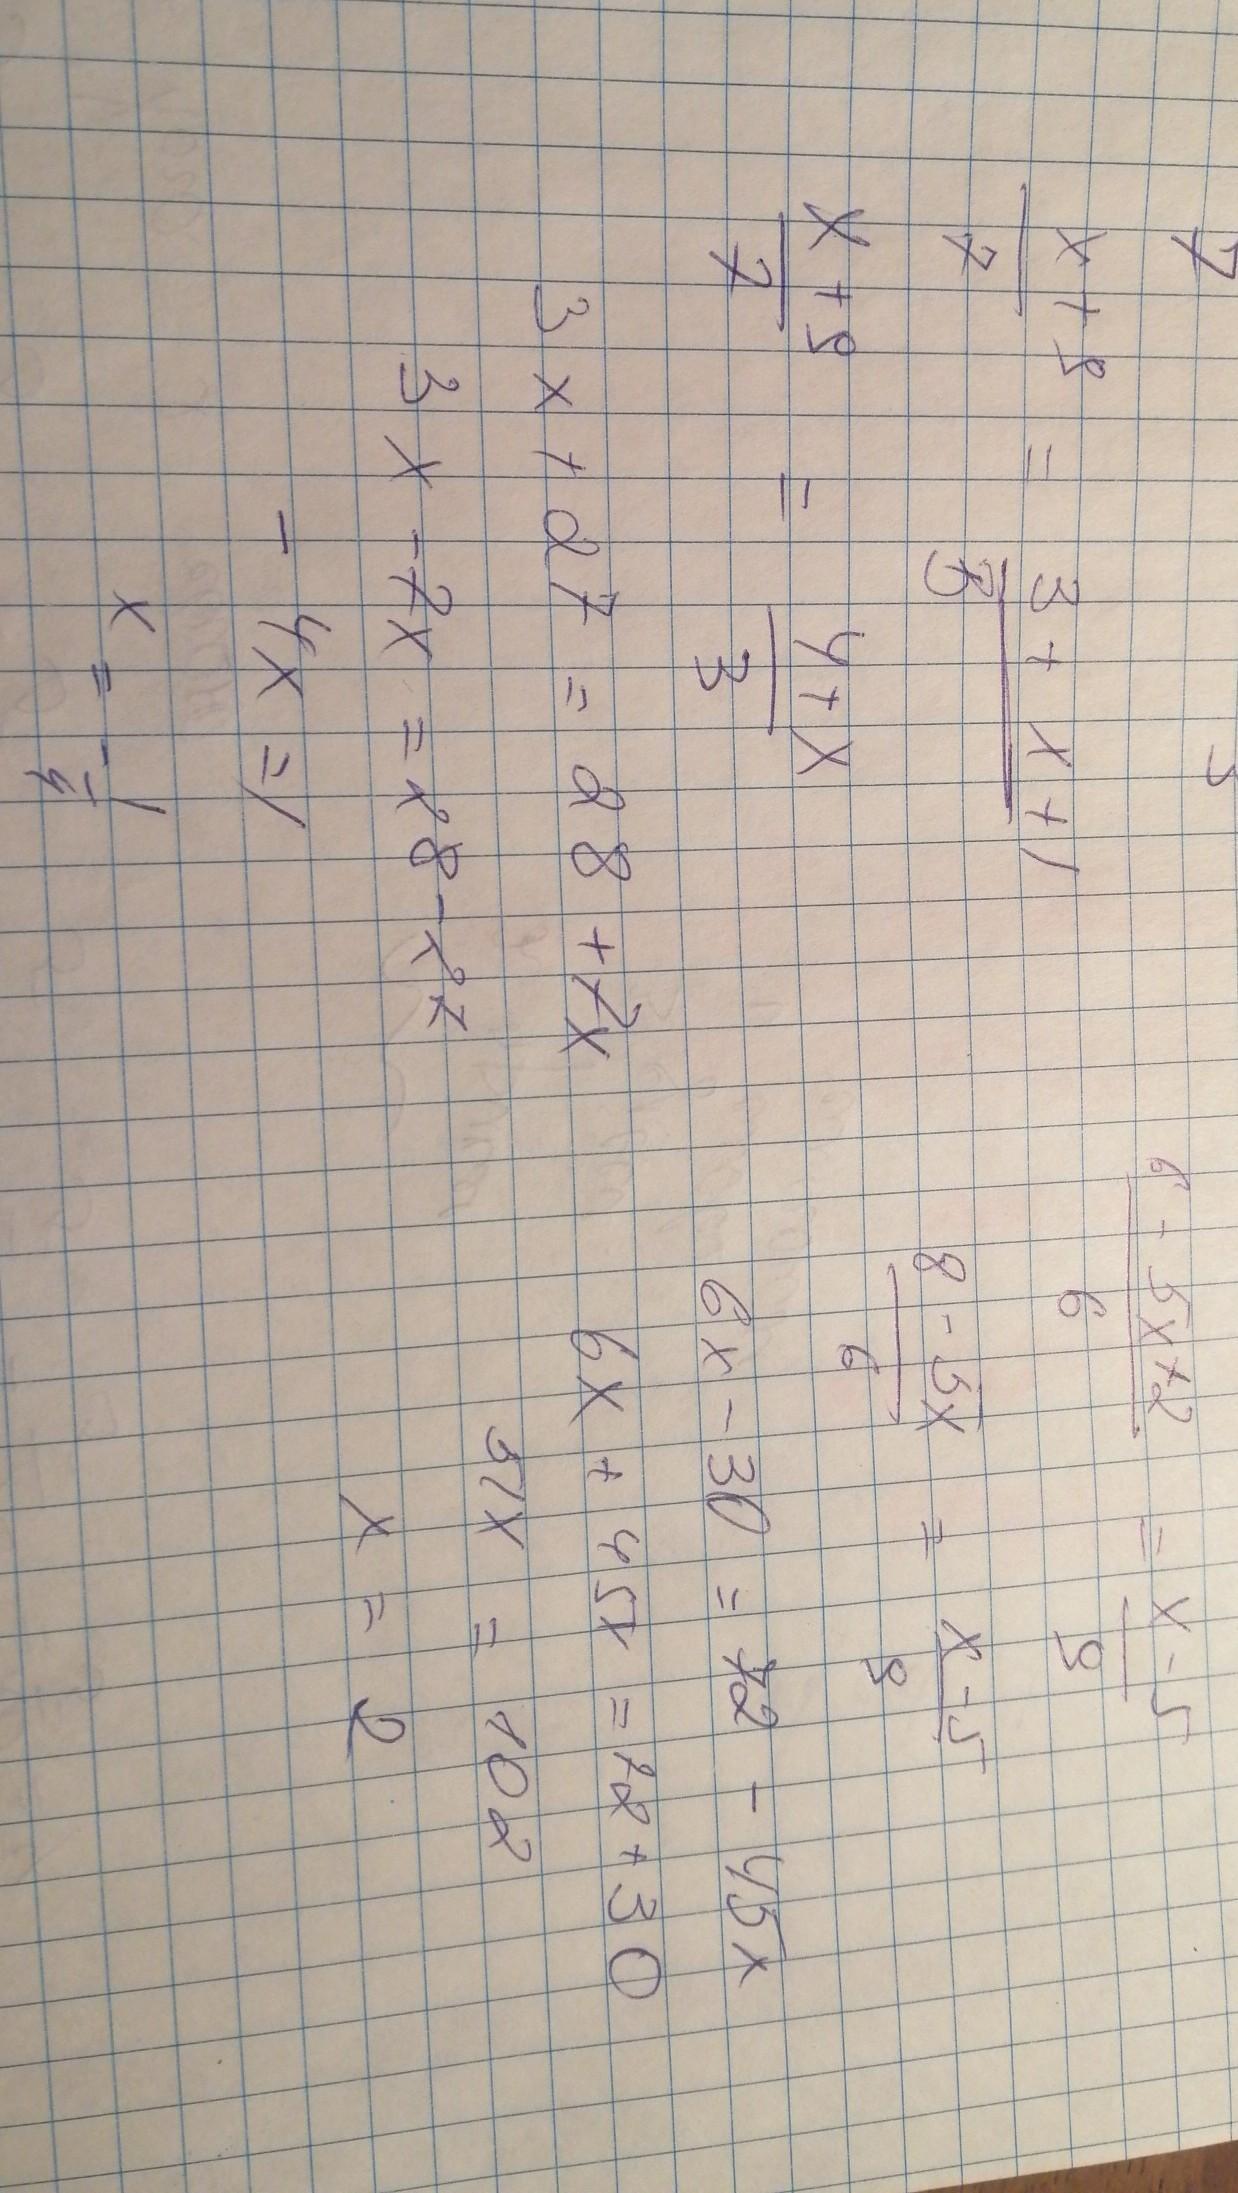 7 3
x+9/7 = 3+x+1/3
x+9/7 = 4+x/3
3x+27=28+7x
3x-7x=28-27
-4x=1
x=-1/4
6-5x+2/6 = x-5/9
8-5x/6 = x-5/9
6x-30=72-45x
6x+45x=72+30
51x=102
x=2